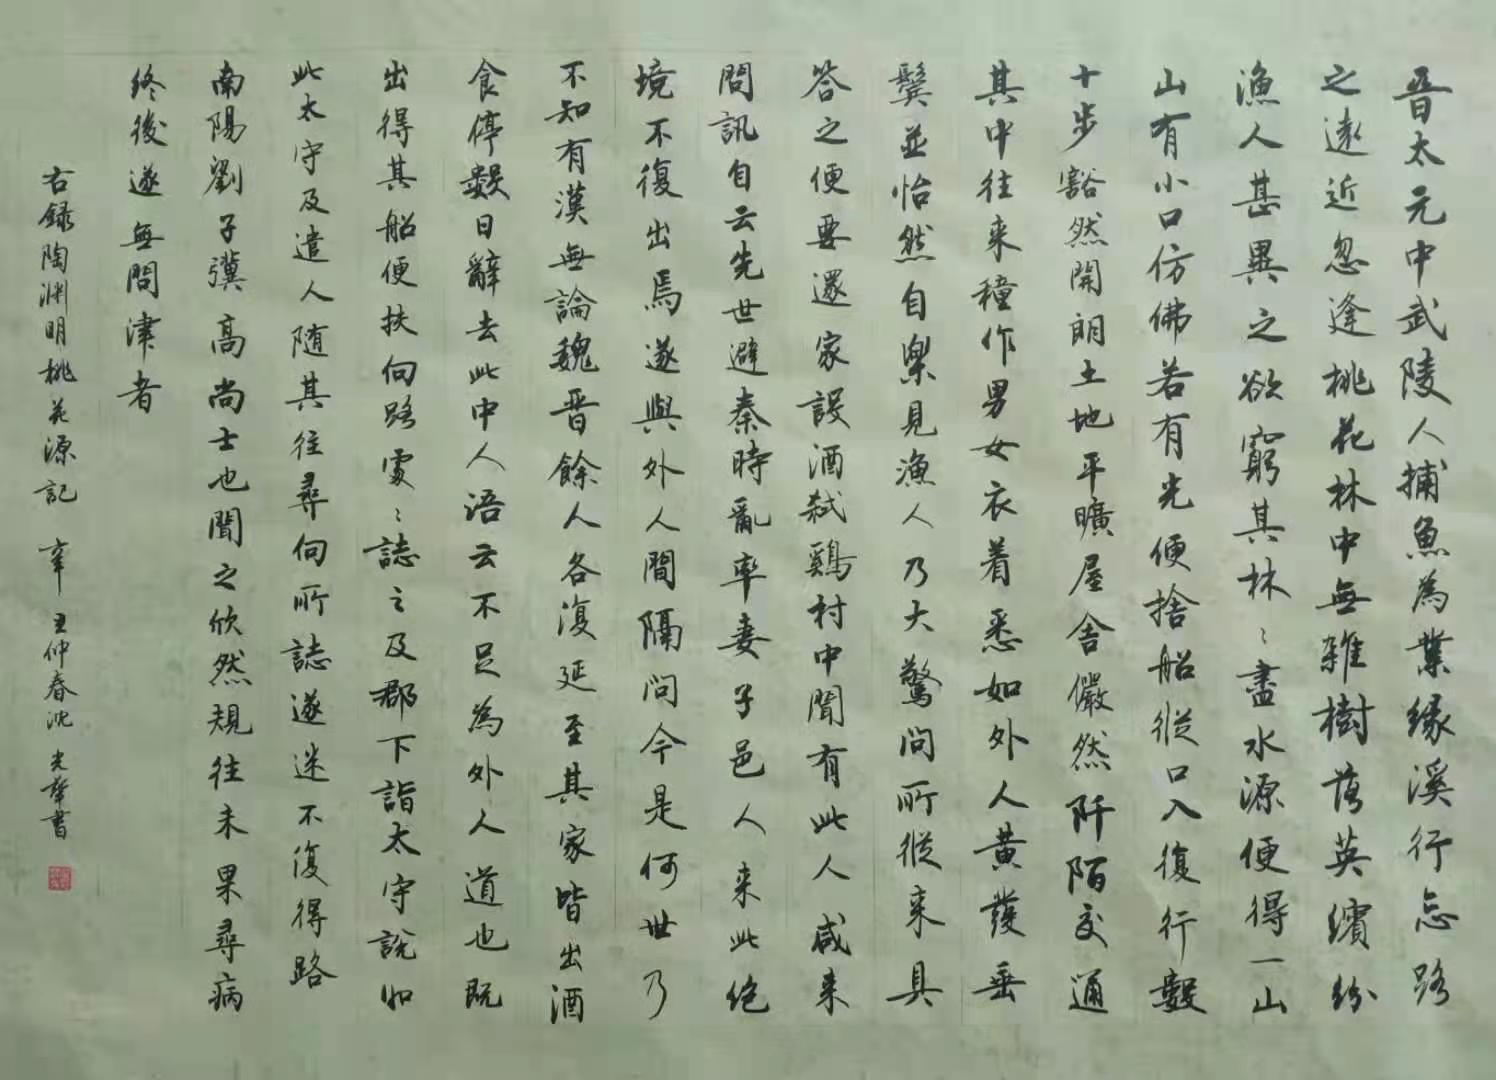 晉太元中武陵人捕魚為業緣溪行忘路
之遠近忽逢桃花林中無雜樹落英繽紛
漁人甚異之欲窮其林〻盡水源便得一山
山有小口仿佛若有光便捨船從口入復行數
十步豁然開朗土地平曠屋舍儼然阡陌交通
其中往來種作男女衣着悉如外人黃髮垂
鬢並怡然自樂見漁人乃大驚問所從來具
答之便要還家設酒弒鷄村中聞有此人咸來
問訊自云先世避秦時亂率妻子邑人來此絶
境不復出焉遂與外人間隔问今是何世乃
不知有漢無論魏晉餘人各復延至其家皆出酒
食停數日辭去此中人语云不足為外人道也既
出得其船便扶向路處〻誌之及郡下詣太守說如
此太守及遣人随其往尋向所誌遂迷不復得路
南陽劉子驥高尚士也聞之欣然規往未果尋病
终後遂無問津者
右録陶渊明桃花源記 辛丑仲春沈光華書